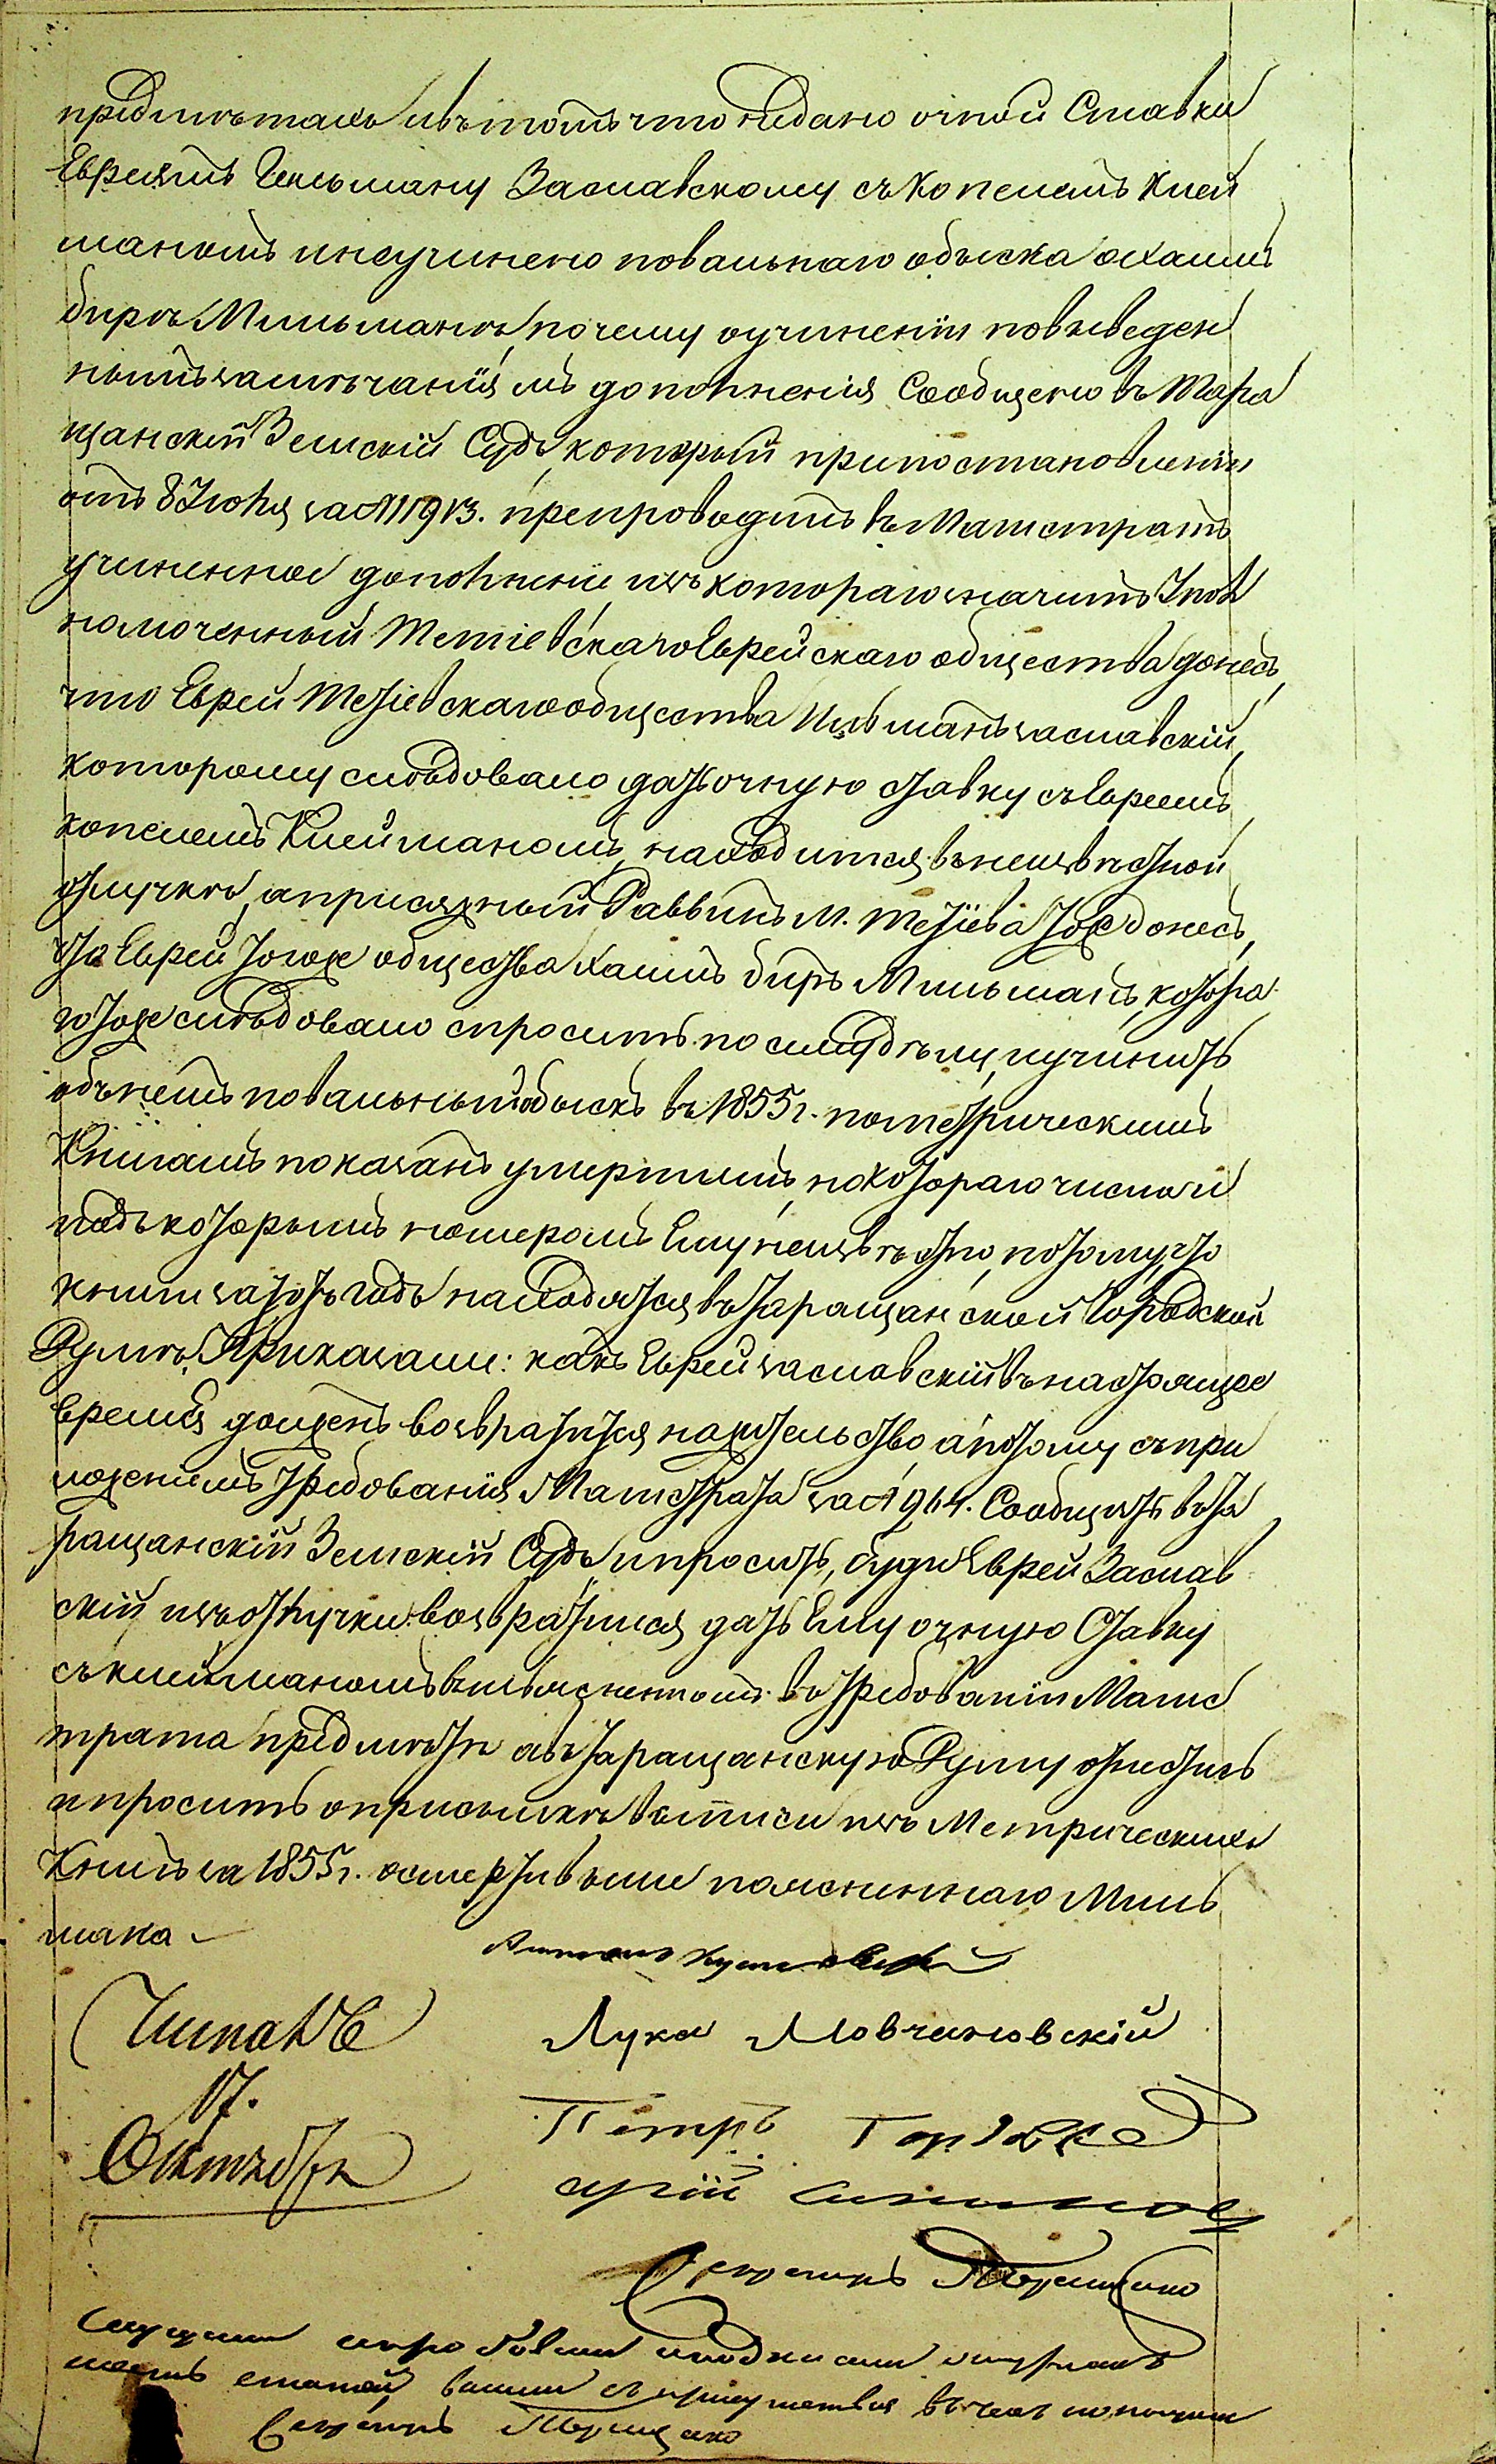 предмѣтахъ и въ томъ что недано очной Ставки
Евреямъ Гельману Заславскому съ Копелемъ Клей
маномъ и неучинено повальнаго обыска о Хаимъ
беръ Мильманѣ, почему о учиненіи повыведен
нымъ замѣчаніямъ дополненія Сообщено въ Тара
щанскій Земскій Судъ, который припостановленіи
отъ 8 Іюня за № 11913. препроводилъ въ Магистратъ
учиненное дополненіе изъ котораго значитъ Упол
номоченный Тетіевскаго Еврейскаго общества донесъ,
что Еврей Тетіевскаго общества Гельманъ Заславскій,
которому слѣдовало дать очную ставку съ Евреемъ
Копелемъ Клейманомъ, находится въ неизвѣстной
отлучкѣ, а присяжный Раввинъ м. Тетіева тоже донесъ,
что Еврей тогоже общества Хаимъ беръ Мильманъ, котора
готоже слѣдовало спросить по сему дѣлу, и учинить
объ немъ повальный обыскъ въ 1855 г. по метрическимъ
Книгамъ показанъ умершимъ, но котораго числа и
подъ которымъ номеромъ Ему неизвѣстно, потому что
книги за тотъ годъ находятся въ Таращанской Городской
Думѣ. Приказали: какъ Еврей Заславскій въ настоящее
время долженъ возвратится на жительство, а потому съ при
ложеніемъ требованія Магистрата за № 914. Сообщить въ Та
ращанскій Земскій Судъ и просить, буде Еврей Заслав
скій изъ отлучки возвратился дать Ему очную Ставку
съ Клейманомъ въ изъясненномъ въ требованіи Магис
трата предмѣтѣ а въ Таращанскую Думу отнестись
и просить о присылкѣ выписи изъ Метрическихъ
Книгъ за 1855 г. о смерти выше поясненнаго Миль
мана.
Читалъ
17.
Октября
Лука Мовчановскій
Петръ
Секретарь Терещенко
Секретарь Терещенко